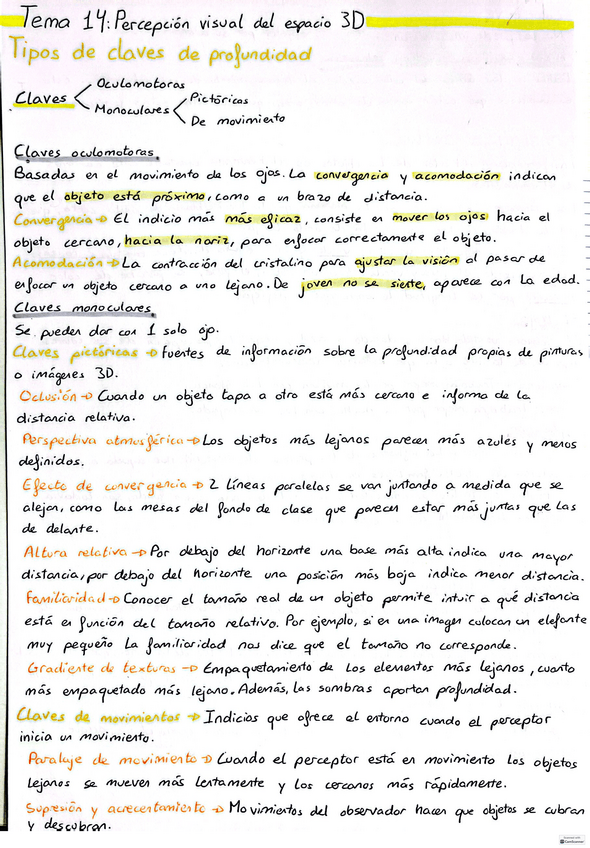 Tema 14: Percepción visual del espacio 3D
Tipos de claves de profundidad
Claves
Oculomotoras
Monoculares
Pictóricas
De movimiento
Claves oculomotoras.
Basadas en el movimiento de los ojos. La convergencia y acomodación indican
que el objeto está próximo, como a un brazo de distancia.
Convergencia → El indicio más más eficaz, consiste en mover los ojos hacia el
objeto cercano, hacia la nariz, para enfocar correctamente el objeto.
Acomodación → La contracción del cristalino para ajustar la visión al pasar de
enfocar un objeto cercano a uno lejano. De joven no se siente, aparece con la edad.
Claves monoculares.
Se pueden dar con 1 solo ojo.
Claves pictóricas → fuentes de información sobre la profundidad propias de pinturas
o imágenes 3D.
Oclusión → Cuando un objeto tapa a otro está más cercano e informa de la
distancia relativa.
Perspectiva atmosférica → Los objetos más lejanos parecen más azules y menos
definidos.
Efecto de convergencia → 2 líneas paralelas se van juntando a medida que se
alejan, como las mesas del fondo de clase que parecen estar más juntas que las
de delante.
Altura relativa → Por debajo del horizonte una base más alta indica una mayor
distancia, por debajo del horizonte una posición más baja indica menor distancia.
Familiaridad → Conocer el tamaño real de un objeto permite intuir a qué distancia
está en función del tamaño relativo. Por ejemplo, si en una imagen colocan un elefante
muy pequeño la familiaridad nos dice que el tamaño no corresponde.
Gradiente de texturas → Empaquetamiento de los elementos más lejanos, cuanto
más empaquetado más lejano. Además, las sombras aportan profundidad.
Claves de movimientos → Indicios que ofrece el entorno cuando el perceptor
inicia un movimiento.
Paralaje de movimiento → Cuando el perceptor está en movimiento los objetos
lejanos se mueven más lentamente y los cercanos más rápidamente.
Supresión y acrecentamiento → Movimientos del observador hacen que objetos se cubran
y descubran.
CamScanner